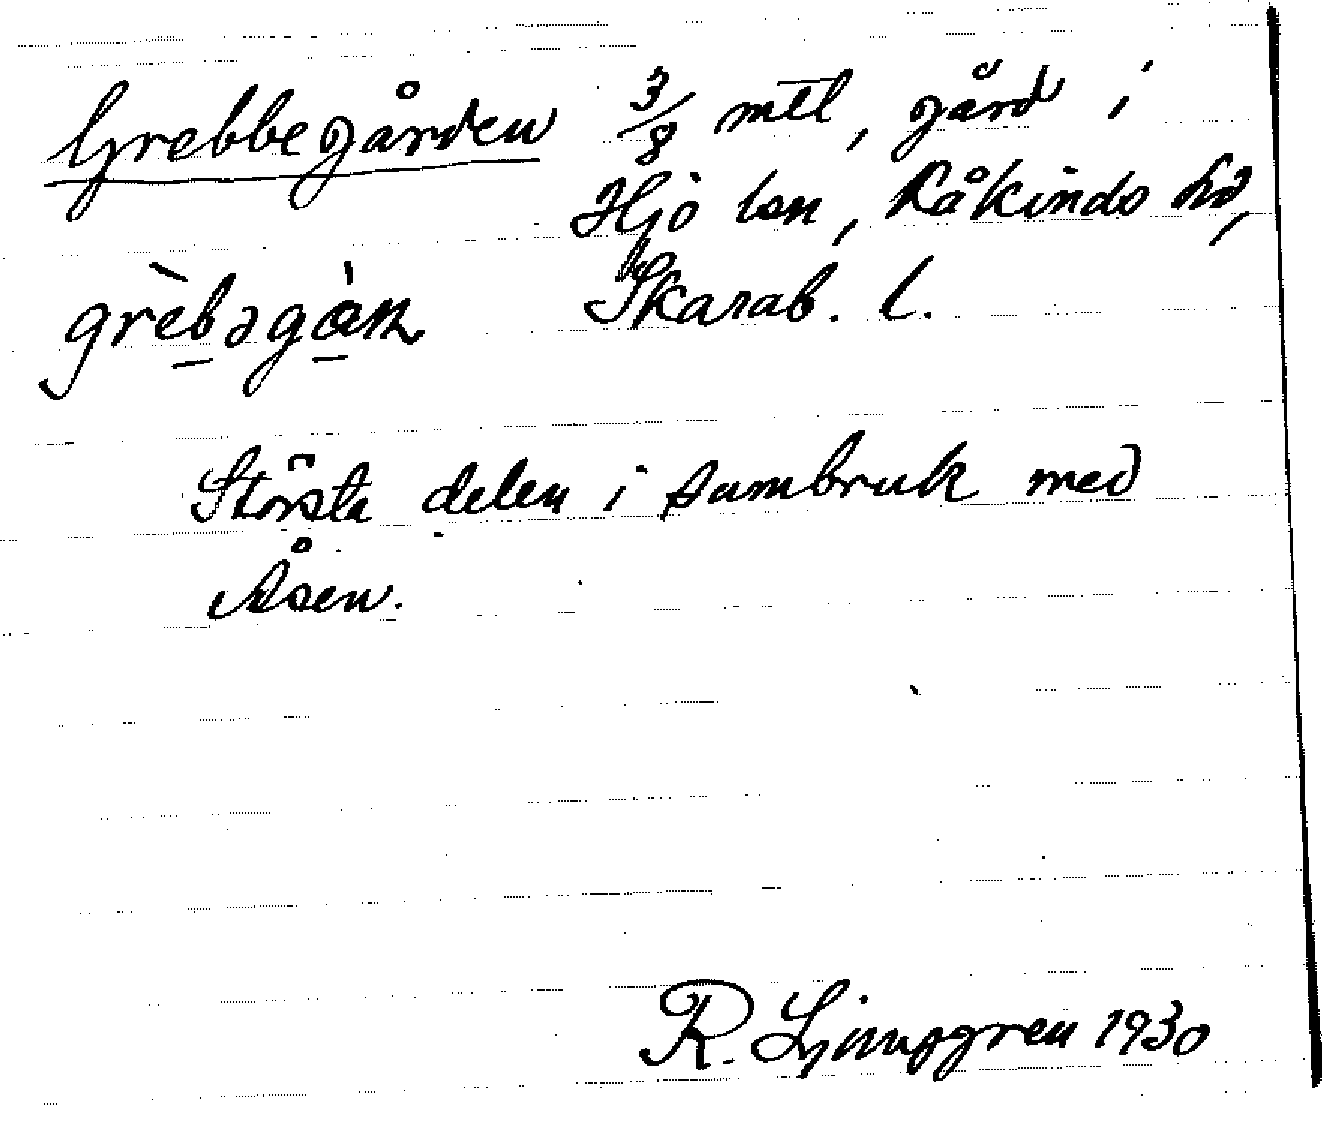 Grebbegården 3/8 mtl, gård i
Hjo lsn, Kåkinds hd,
grèbəgàn Skarab. l.
Största delen i sambruk med
Åsen.
R. Ljunggren 1930